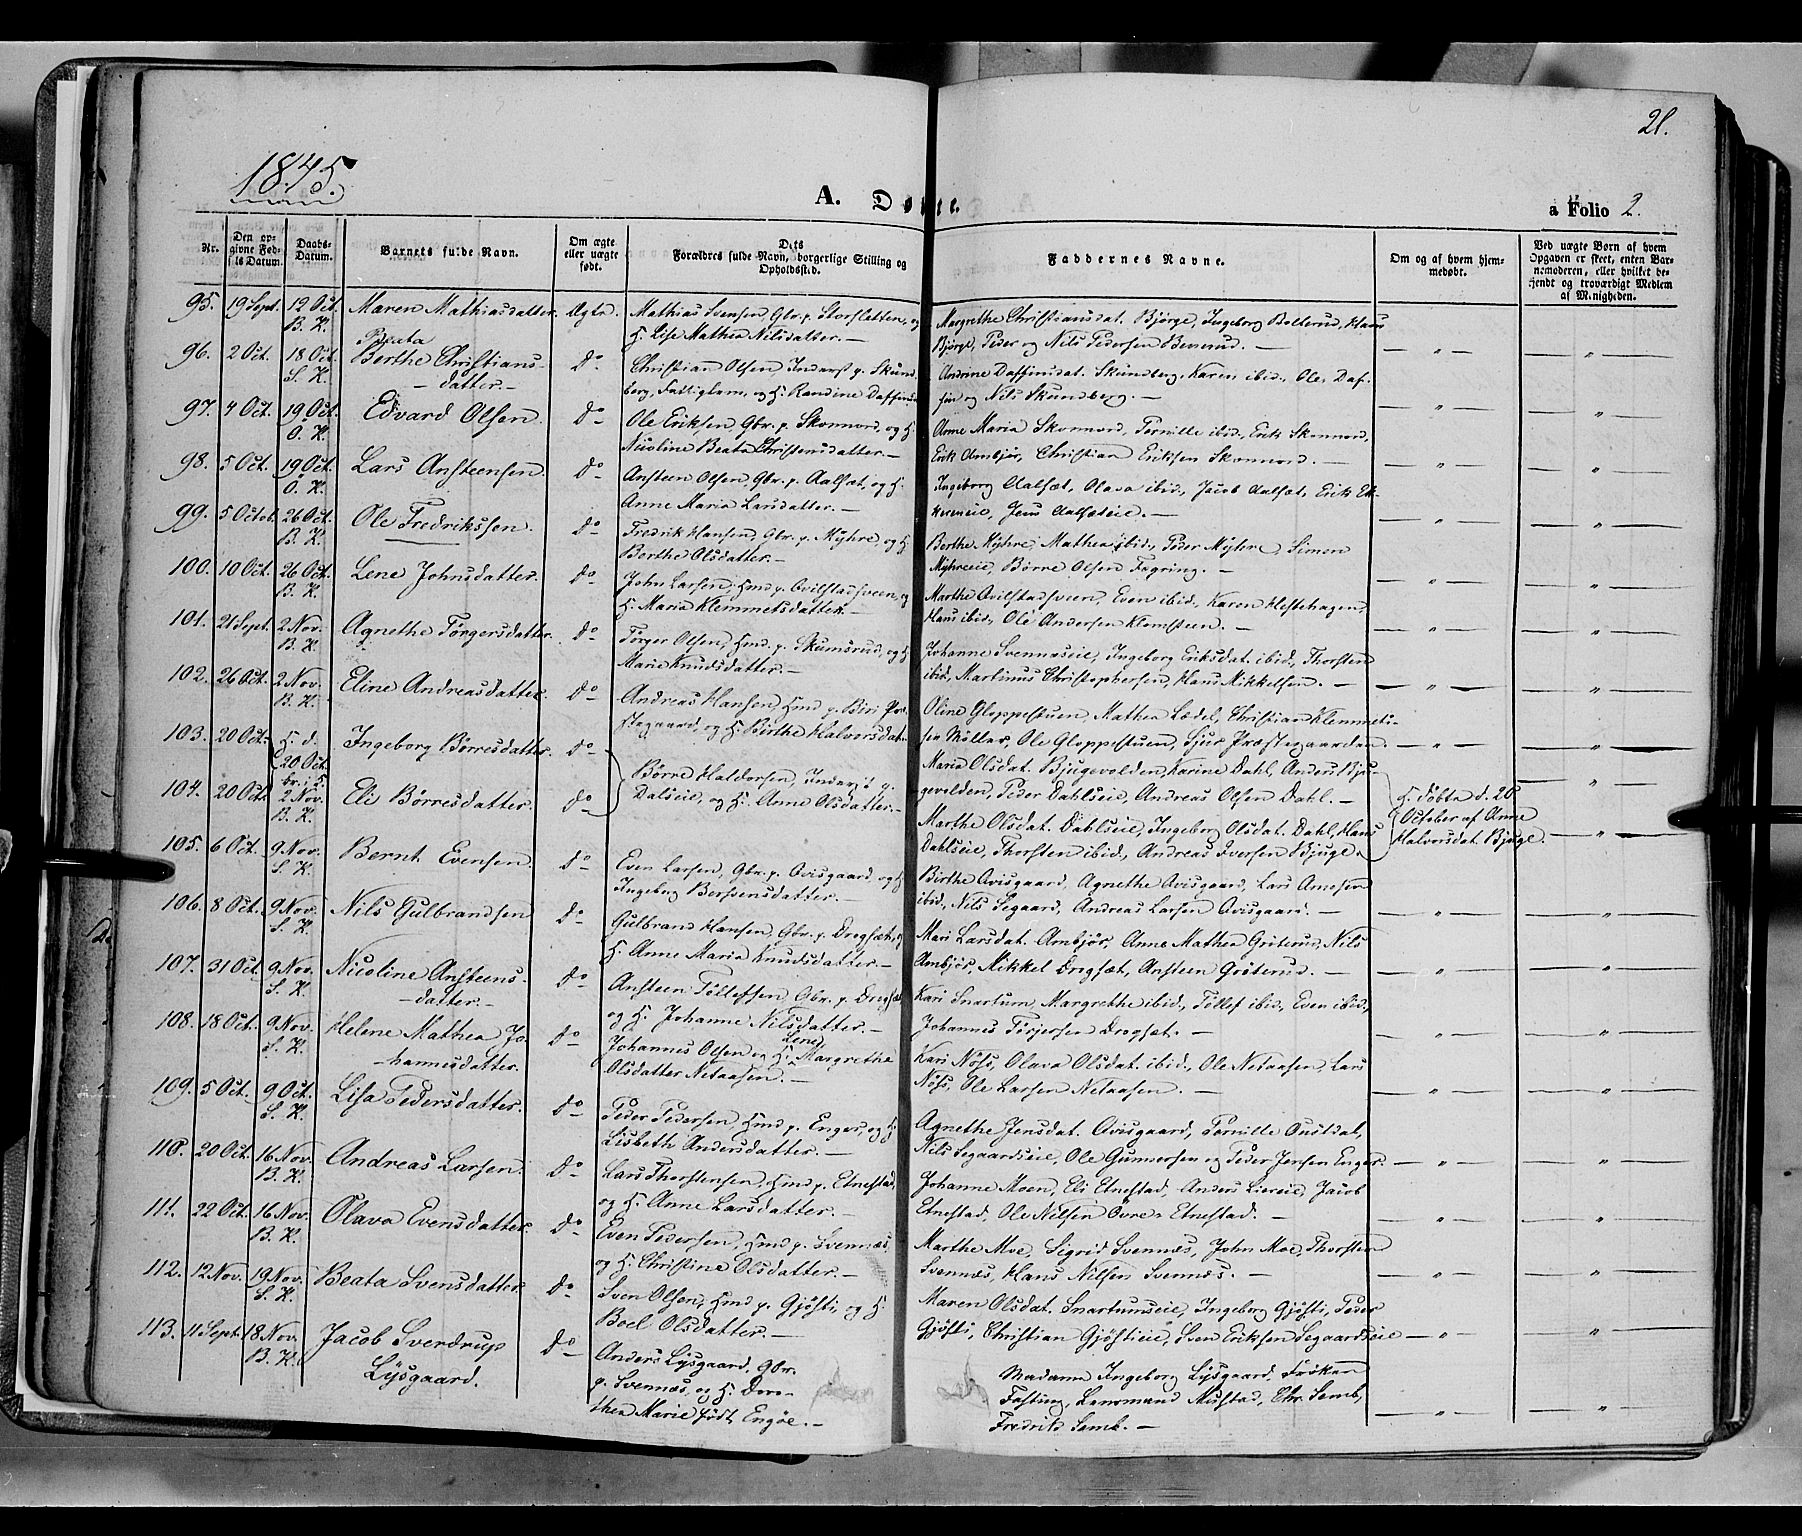 21.
1845.
A. Døbte.
a Folio 2.
Nr.
Den op-
givne Fød-
sels Datum.
Daabs-
Datum.
Barnets fulde Navn.
Om ægte
eller uægte
født.
Dets
Forældres fulde Navn, borgerlige Stilling og
Opholdssted.
Faddernes Navne.
Om og af hvem hjem-
medøbt.
Ved uægte Børn af hvem
Opgaven er skeet, enten Bar-
nemoderen, eller hvilket be-
kjendt og troværdigt Medlem
af Menigheden.
95. 19 Sept. 12 Oct. B. K. Maren Mathiasdatter. Ægte. Mathias Svensen, Gbr. p. Storsletten, og
H. Lise Mathea Nilsdatter. —
Margrethe Christiansdat. Bjørge, Ingeborg Bolterud, Hans
Bjørge, Peder og Nils Pedersen Beverud. — — „ — — „ —
96. 2 Oct. 18 Oct. S. K. Beata
Berthe Christians-
datter. — Do Christian Olsen Inderst p. Skund-
berg, Fattiglem, og H. Randine Daffins
Andrine Daffinsdat. Skundberg, Karen ibid., Ole Daf-
fin og Nils Skundberg. — — „ — — „ —
97. 4 Oct. 19 Oct. O. K. Edvard Olsen. Do Ole Eriksen, Gbr. p. Skonnord, og H.
Nicoline Beata Christensdatter. —
Anne Maria Skonnord, Pernille ibid., Erik Skonnord,
Erik Ambjør, Christian Eriksen Skonnord. — — „ — — „ —
98. 5 Oct. 19 Oct. O. K. Lars Ansteensen. Do Ansteen Olsen, Gbr. p. Aalsæt, og H.
Anne Maria Larsdatter. —
Ingeborg Aalsæt, Olava ibid., Jacob Aalsæt, Erik Ek-
Jens Aalsæteie. — — „ — — „ —
99. 5 Octob. 26 Oct. B. K. Ole Fredriksson. Do Fredrik Hansen, Gbr. p. Myhre, og H.
Berthe Olsdatter. —
Berthe Myhre, Mathea ibid., Peder Myhre, Simon
Myhreeie, Børre Olsen Fagring. — — „ — — „ —
100. 10 Oct. 26 Oct. B. K. Lene Johnsdatter. Do John Larsen, Hmd p. Ovilstadsveen, og
H. Maria Klemmetsdatter. —
Marthe Ovilstadsveen, Even ibid., Karen Hestehagen,
Hans ibid., Ole Andersen Klomsteen. — — „ — — „ —
101. 21 Sept. 2 Nov. B. K. Agnethe Tørgersdatter. Do Tørger Olsen, Hmd p. Skumsrud, og H.
Marie Knudsdatter. —
Johanne Svennæseie, Ingeborg Eriksdat. ibid., Thorsten
ibid., Martinus Christophersen, Hans Mikkelsen. — — „ — — „ —
102. 26 Oct. 2 Nov. B. K. Eline Andreasdatter. Do Andreas Hansen, Hmd p. Biri Præ-
stegaard, og H. Birthe Halvorsdat.
Oline Gloppestuen, Mathea Lædel, Christian Klemmet-
sen Møller, Ole Gloppestuen, Sjur Præstegaarden. — „ — — „ —
103. 20 Oct. H. d. 20 Oct. br. i 5. Ingeborg Børresdatter. Do
Børre Haldorsen, Inderst p.
Dalseie, og H. Anne Olsdatter. —
Maria Olsdat. Bjugevolden, Karine Dahl, Anders Bju-
gevolden, Peder Dahlseie, Andreas Olsen Dahl. — — „ —
104. 20 Oct. 2 Nov. B. K. Eli Børresdatter. Do
Marthe Olsdat. Dahlseie, Ingeborg Olsdat. Dahl, Hans
Dahlseie, Thorsten ibid., Andreas Iversen Bjuge.
H. døbta d. 20
October af Anne
Halvorsdat. Bjuge. — „ —
105. 6 Oct. 9 Nov. S. K. Bernt Evensen. Do Even Larsen, Gbr. p. Ovisgaard, og H.
Ingeborg Berfvensdatter. —
Birthe Ovisgaard, Agnethe Ovisgaard, Lars Arnesen
ibid., Nils Segaard, Andreas Larsen Ovisgaard. — — „ — — „ —
106. 8 Oct. 9 Nov. S. K. Nils Gulbrandsen Do Gulbrand Hansen, Gbr. p. Drogsæt, og
H. Anne Maria Knudsdatter. —
Mari Larsdat. Ambjør, Anne Mathea Grøterud, Nils
Ambjør, Mikkel Drogsæt, Ansteen Grøterud. — — „ — — „ —
107. 31 Oct. 9 Nov. S. K. Nicoline Ansteens-
datter. — Do Ansteen Tollefsen, Gbr. p. Drogsæt
og H. Johanne Nilsdatter. —
Kari Snartum, Margrethe ibid., Tollef ibid., Even ibid.,
Johannes Tørjersen Drogsæt. — — „ — — „ —
108. 18 Oct. 9 Nov. S. K. Helene Mathea Jo-
hannesdatter. Do Johannes Olsen og H. Lene Margrethe
Olsdatter Netaasen. —
Kari Nøss, Olava Olsdat. ibid., Ole Netaasen, Lars
Nøss, Ole Larsen Netaasen. — — „ — — „ —
109. 5 Oct. 9 Oct. S. K. Lisa Pedersdatter. Do Peder Pedersen, Hmd p. Enger, og H.
Lisbeth Andersdatter. —
Agnethe Jensdat. Ovisgaard, Pernille Oustdal,
Nils Segaardseie, Ole Gunnersen og Peder Jensen Enger. — „ — — „ —
110. 20 Oct. 16 Nov. B. K. Andreas Larsen. Do Lars Thorstensen, Hmd p. Etnestad,
og H. Anne Larsdatter. —
Johanne Moen, Eli Etnestad, Anders Liereie, Jacob
Etnestad, Ole Nilsen Øvre-Etnestad. — — „ — — „ —
111. 22 Oct. 16 Nov. B. K. Olava Evensdatter. Do Even Pedersen, Hmd p. Svennæs,
og H. Christine Olsdatter. —
Marthe Moe, Sigrid Svennæs, John Moe, Thorsten
Svennæs, Hans Nilsen Svennæs. — — „ — — „ —
112. 12 Nov. 19 Nov. S. K. Beata Svensdatter. Do Sven Olsen, Hmd p. Gjøsti, og H.
Boel Olsdatter. —
Maren Olsdat. Snartumseie, Ingeborg Gjøsti, Peder
Gjøsti, Christian Gjøstieie, Sven Eriksen Segaardseie — „ — — „ —
113. 11 Sept. 18 Nov. B. K. Jacob Sverdrup
Lysgaard. Do Anders Lysgaard, Gbr.
p. Svennæs, og H. Doro-
thea Marie født Engøe. —
Madame Ingeborg Lysgaard, Frøken
Fasting, Lensmand Mustad, Chr. Semb,
Fredrik Semb. — — „ — — „ —